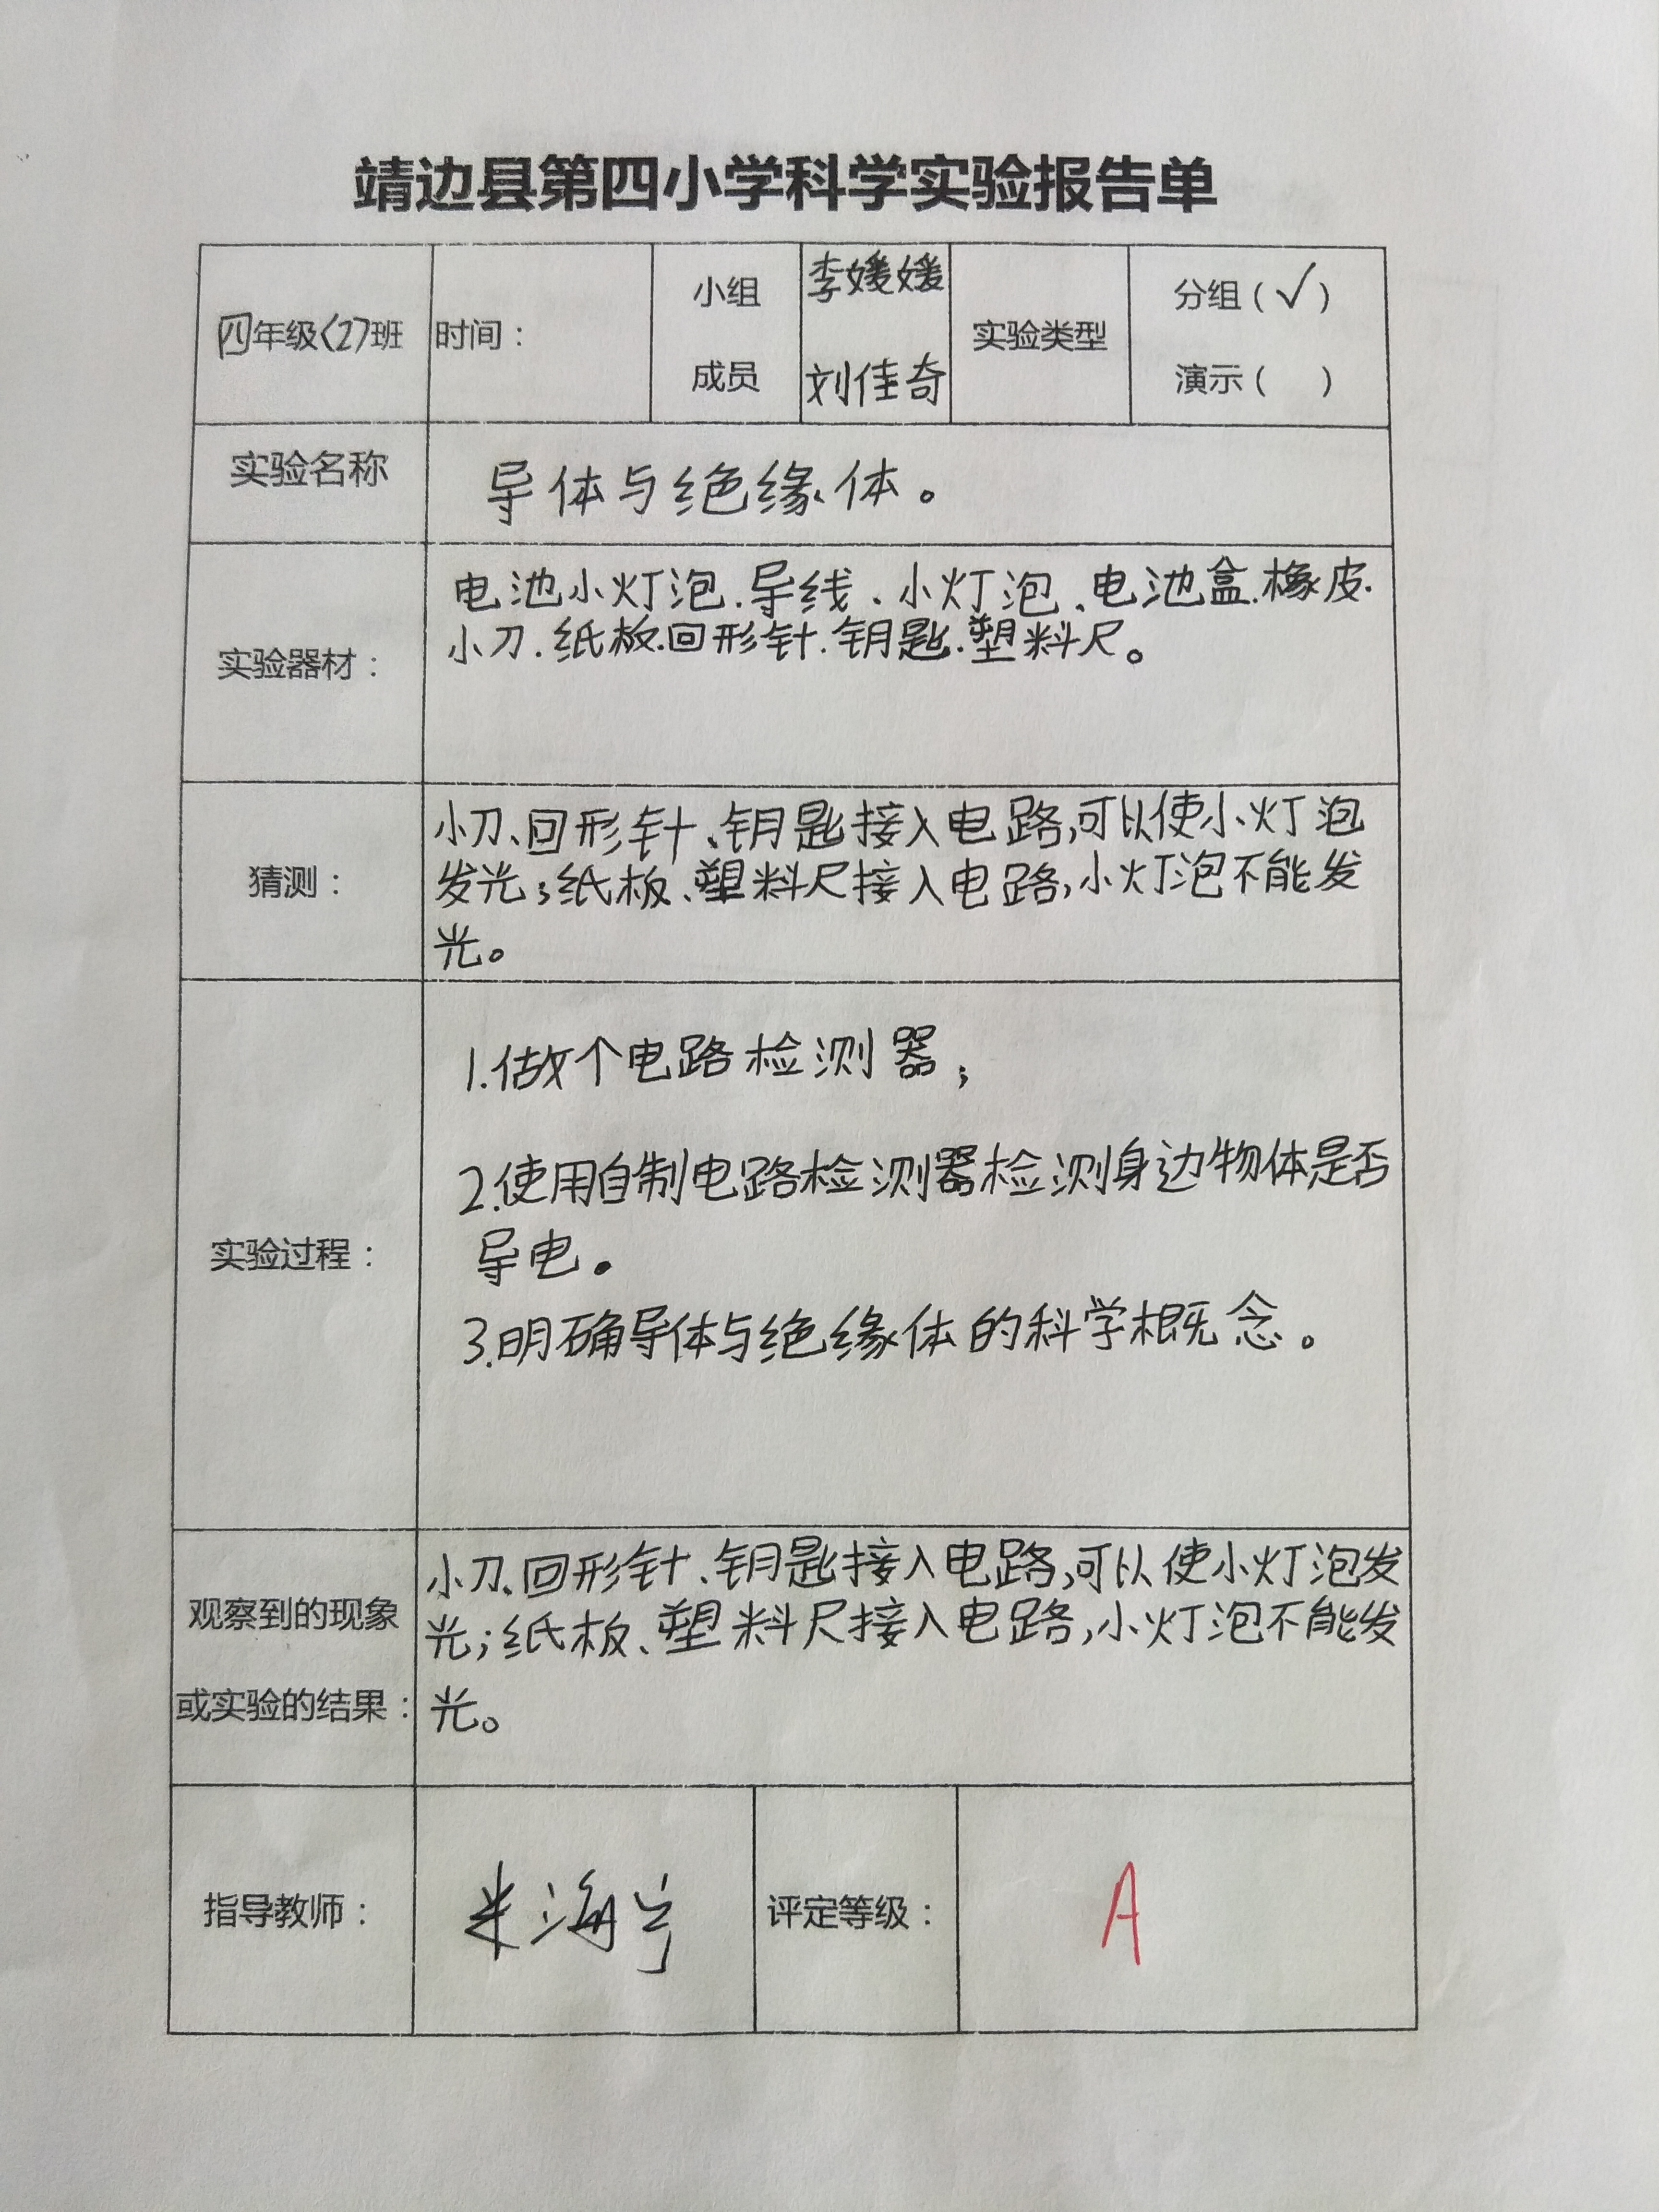 靖边县第四小学科学实验报告单
四年级〈2〉班
时间：
小组
成员
李媛媛
刘佳奇
实验类型
分组（√）
演示（ ）
实验名称
导体与绝缘体。
实验器材：
电池小灯泡.导线、小灯泡、电池盒.橡皮.
小刀.纸板.回形针.钥匙.塑料尺。
猜测：
小刀、回形针、钥匙接入电路,可以使小灯泡
发光;纸板、塑料尺接入电路,小灯泡不能发
光。
实验过程：
1.做个电路检测器;
2.使用自制电路检测器检测身边物体是否
导电。
3.明确导体与绝缘体的科学概念。
观察到的现象
或实验的结果：
小刀、回形针、钥匙接入电路,可以使小灯泡发
光;纸板、塑料尺接入电路,小灯泡不能发
光。
指导教师：
评定等级：
A